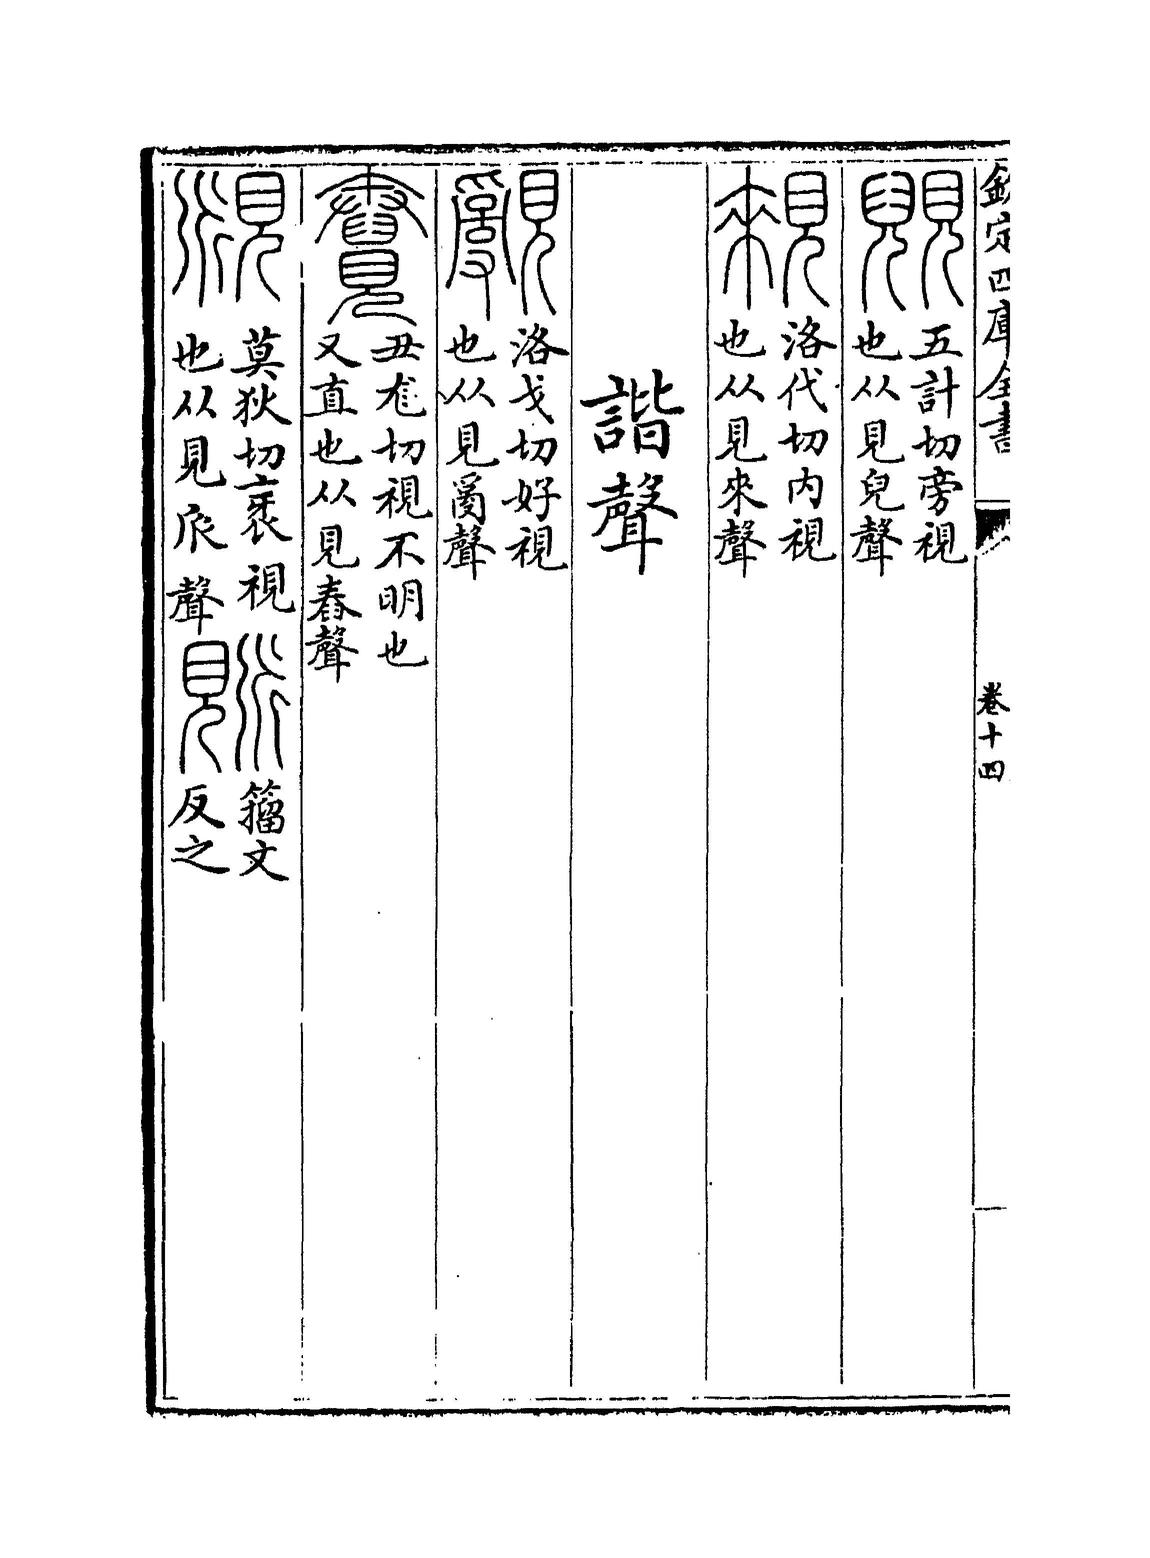 欽定四庫全書
卷十四
覞 五計切旁視
也从見兒聲
覝 洛代切内視
也从見來聲
諧聲
覶 洛戈切好視
也从見𤔔聲
丑尨切視不明也
又直也从見舂聲
覛 莫狄切衺視
也从見𠂢聲
籀文
反之